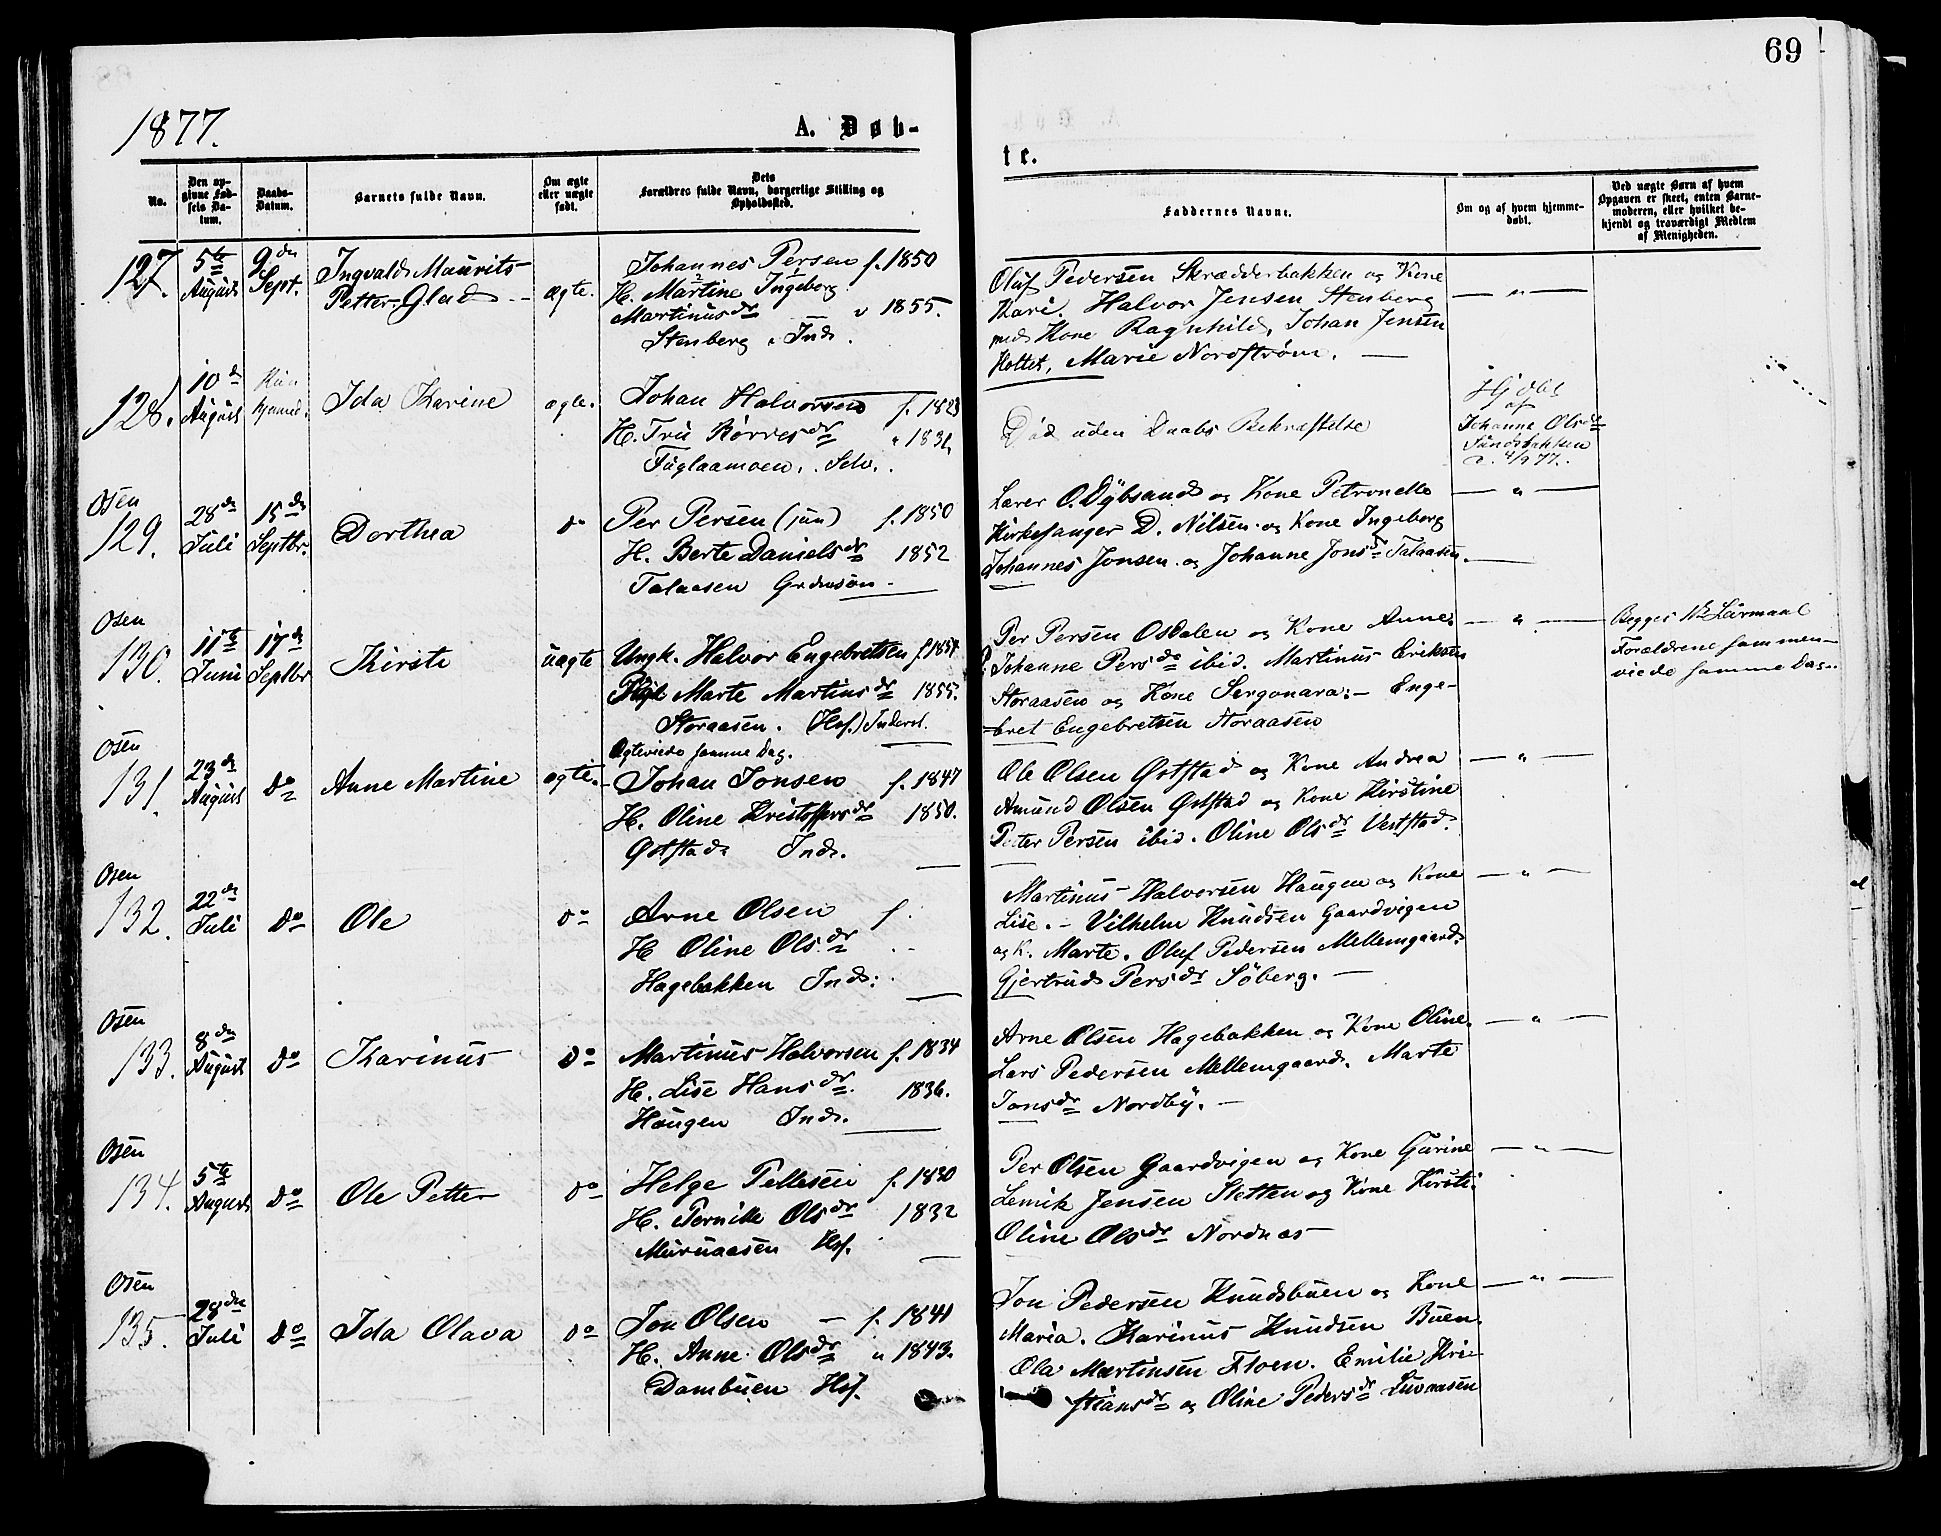 69
1877.
A. Døb-
te.
No.
Den op-
givne Fød-
sels Da-
tum.
Daabs-
Datum.
Barnets fulde Navn.
Om ægte
eller uægte
født.
Dets
Forældres fulde Navn, borgerlige Stilling og
Opholdssted.
Faddernes Navne.
Om og af hvem hjemme-
døbt.
Ved uægte Børn af hvem
Opgaven er skeet, enten Barne-
moderen, eller hvilket be-
kjendt og troværdigt Medlem
af Menigheden.
127.
5te
August
9de
Sept.
Ingvald Maurits
Petter Glad
ægte.
Johannes Persen f. 1850
H. Martine Ingeborg
Martinusdr " 1855.
Stenberg . Ind.
Oluf Pedersen Skrædderbakken og Kone
Kari. Halvor Jensen Stenberg
med Kone Ragnhild, Johan Jensen
Kottet, Marie Nordstrøm. —
— " —
128.
10de
August
Kun
hjemmed.
Ida Karine
ægte.
Johan Halvorsen f. 1823
H. Tru " 183
Fuglaamoen. . Selv.
Død uden Daabs Bekræftelse
Hj døbt
af
Johanne Olsdr
Sundbakken
d. 4/9 77.
Osen
129.
28de
Juli
15de
Septbr.
Dorthea
do
Per Persen (jun) f. 1850
H. Berte Danielsdr 1852
Talaasen
Lærer O. Dybsand og Kone Petronelle
Kirkesanger D. Nilsen og Kone Ingeborg
Johannes Jonsen og Johanne Jonsdr Talaasen.
— " —
Osen
130.
11te
Juni
17de
Septbr
Kirsti
uægte
Ungk. Halvor Engebretsen f. 185
Marte Martinsdr 1855.
Storaasen. (Hsf.) Inderst.
Per Persen Osdalen og Kone Anne
Johanne Persdr ibid. Martinus Eriksen
Storaasen og Kone Sergonara. — Enge-
bret Engebretsen Storaasen
— " —
Begges 1ste Leirmaal
Forældrene sammen-
viede samme Dag.
Osen
131.
23de
August
do
Anne Martine
ægte.
Ægteviede samme Dag.
Johan Jonsen f. 1847
H. Oline Kristoffersdr 1850.
Øststad Ind.
Ole Olsen Øststad og Kone Andrea
Amund Olsen Øststad og Kone Kirstine
Peter Persen ibid. Oline Olsdr Vestad.
— " —
Osen
132.
22de
Juli
do
Ole
do
Arne Olsen f.
H Oline Olsdr
Hagebakken Ind.
Martinus Halvorsen Haugen og Kone
Lise. — Vilhelm Knudsen Gaardvigen
og K. Marte. Oluf Pedersen Mellemgaard.
Gjertrud Persdr Søberg. —
— " —
Osen
133.
8de
August
do
Karinus
do
Martinus Halvorsen f. 1834
H. Lise Hansdr 1836.
Haugen Ind.
Arne Olsen Hagebakken og Kone Oline.
Lars Pedersen Mellemgaard. Marte
Jonsdr Nordby. —
— " —
Osen
134.
5te
August
do
Ole Petter
do
Helge Pellesen f. 1830
H. Pernille Olsdr 1832
Muruaasen Hsf.
Per Olsen Gaardvigen og Kone Gurine
Lemik Jensen Sletten og Kone Kirsti.
Oline Olsdr Nordnæs —
— " —
Osen
135.
28de
Juli
do
Ida Olava
do
Jon Olsen — f. 1841
H. Anne Olsdr " 1843.
Dambuen Hsf.
Jon Pedersen Knudsbuen og Kone
Maria. Karinus Knudsen Buen.
Ola Martinsen Floen. Emilie Kri-
stiansdr og Oline Pedersdr
— " —